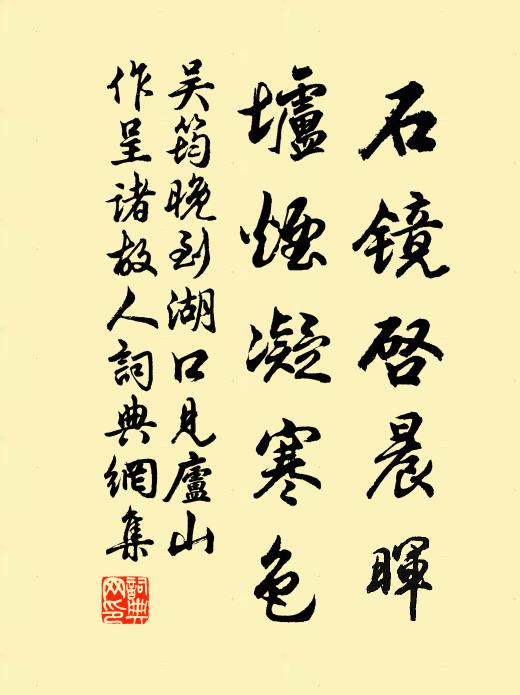 石镜启晨晖
垆烟凝寒色
吴筠晚到湖口见庐山
作呈诸故人词典網集